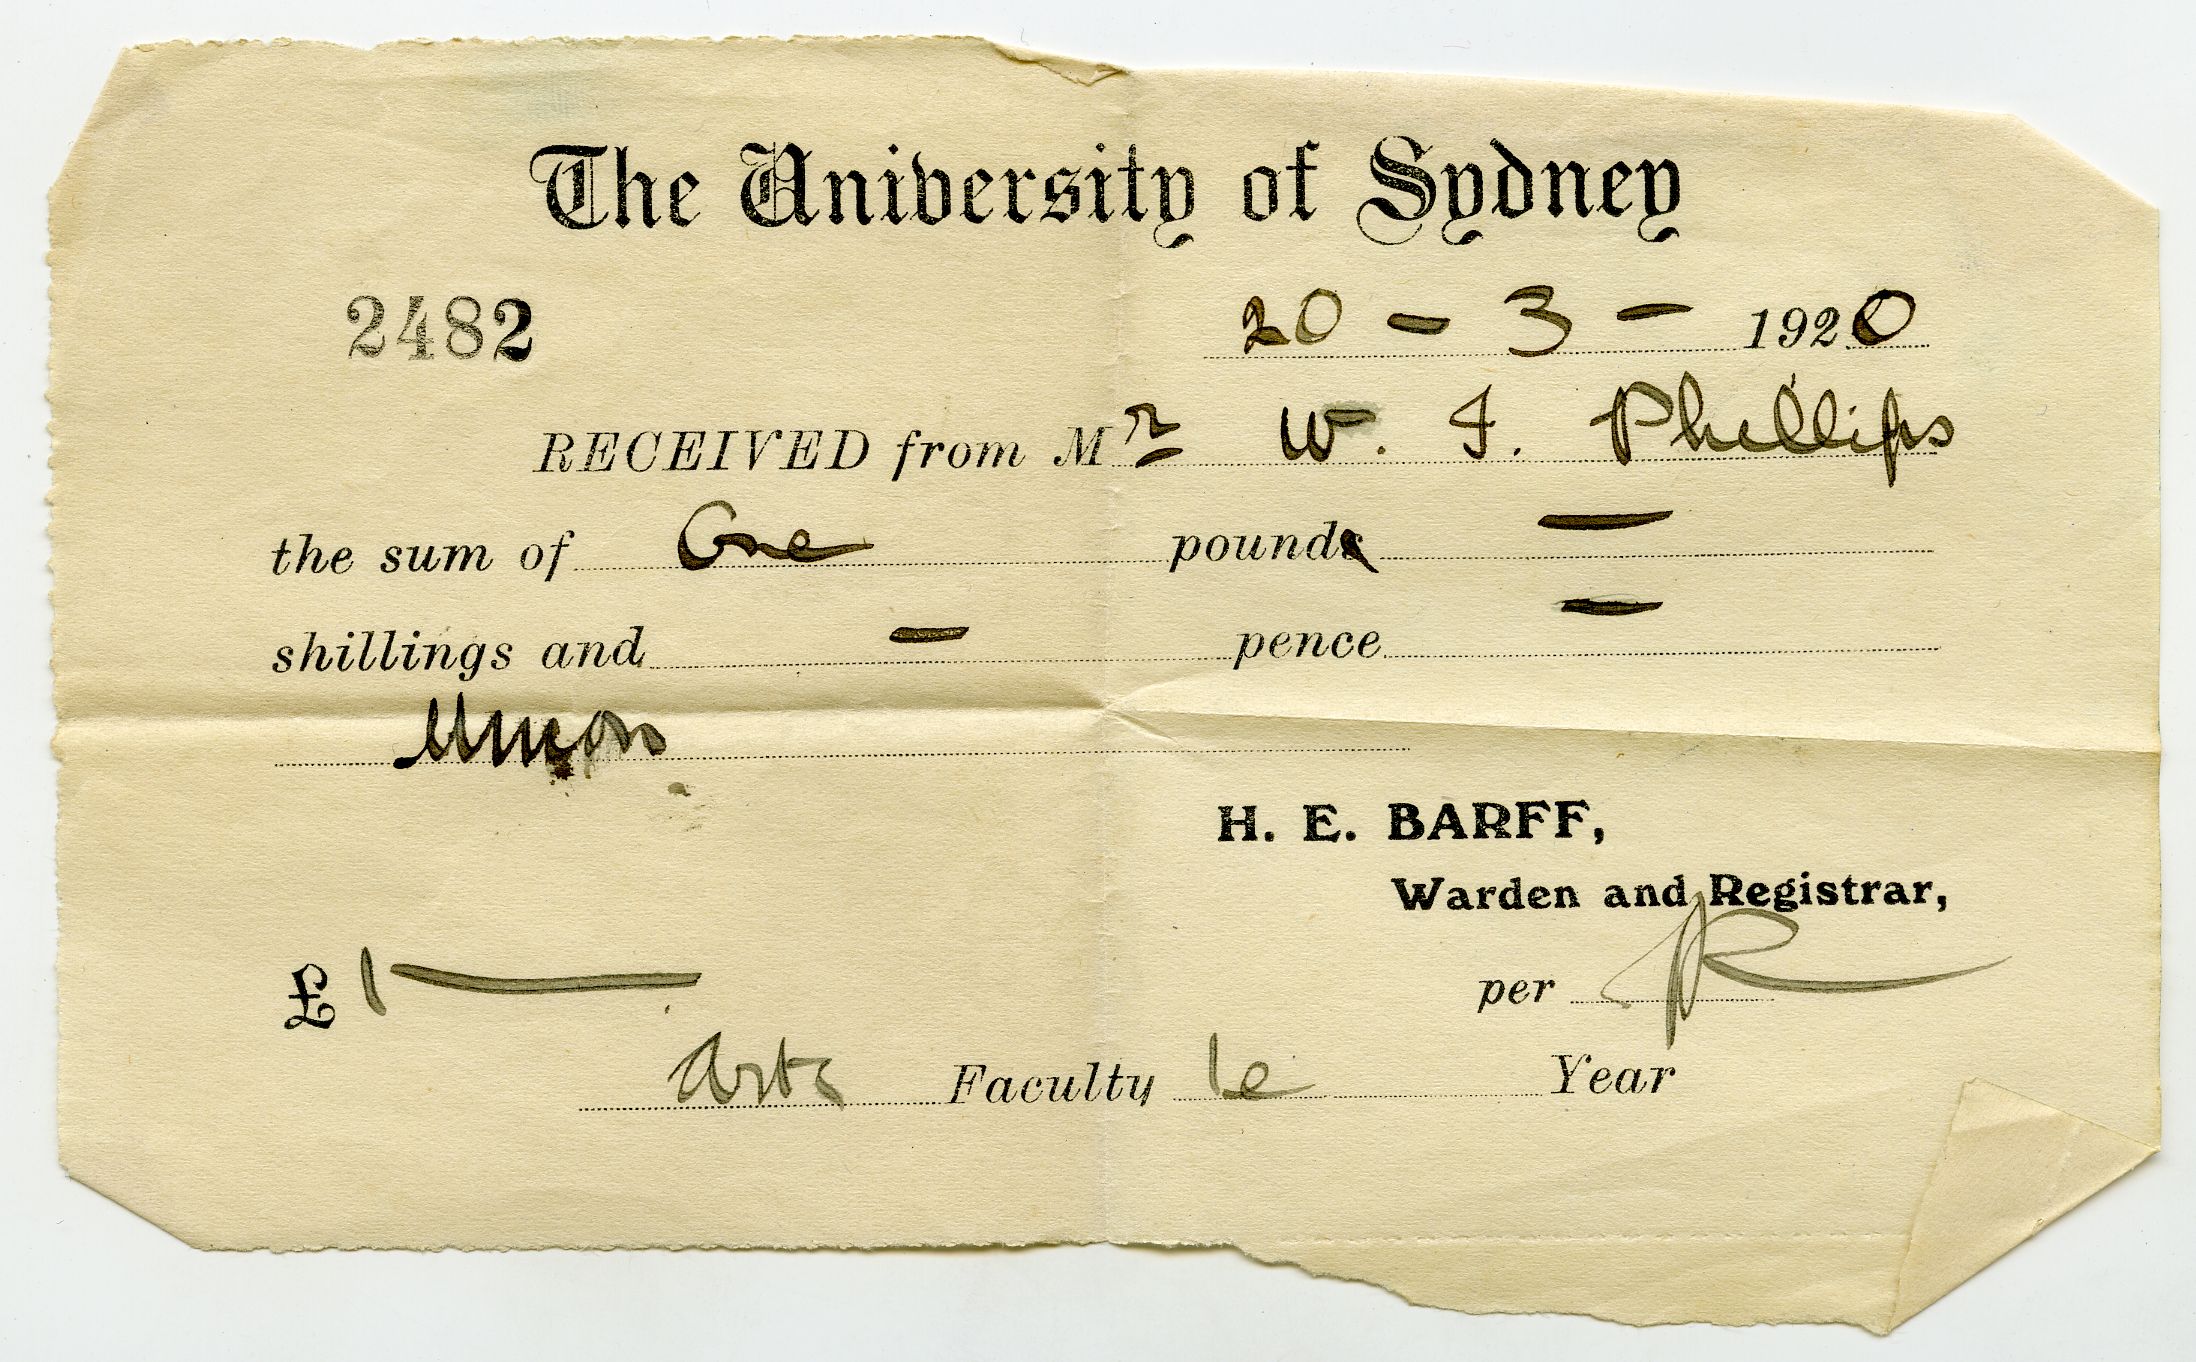 The University of Sydney
2482
20 - 3 - 1920
RECEIVED from Mr W. I. Phillips
the sum of One pound —
shillings and — pence —
Union
H. E. BARFF,
Warden and Registrar,
£ 1 —
per
Arts Faculty Ie Year